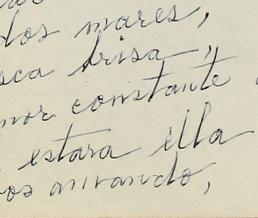 dos mares,
sca brisa,
mor constante
estara ella
os anivando,